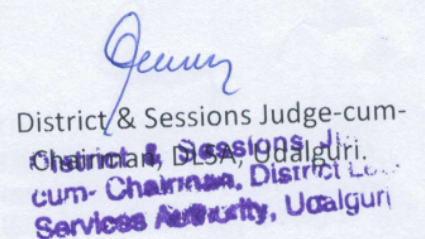 District & Sessions Judge-cum-
Chairman, DLSA, Udalguri.
District & Sessions
cum- Chairman, District
Services Authority, Udalguri